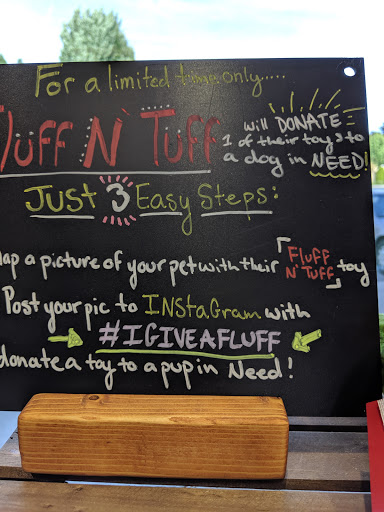 For a limited time only.....
Fluff N' Tuff
will DONATE
1 of their toys to
a dog in NEED!
Just 3 Easy Steps:
ap a picture of your pet with their Fluff N' Tuff toy
Post your pic to INStaGram with
#IGIVEAFLUFF
donate a toy to a pup in Need!